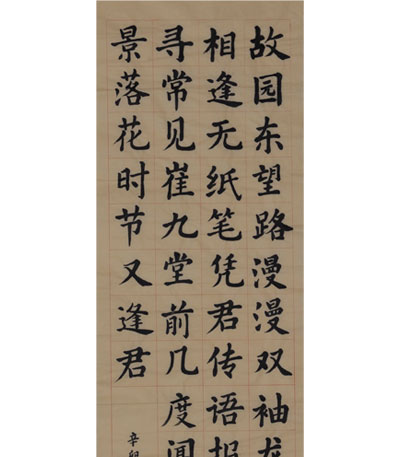 故园东望路漫漫双袖龙
相逢无纸笔凭君传语报
寻常见崔九堂前几度闻
景落花时节又逢君
辛卯